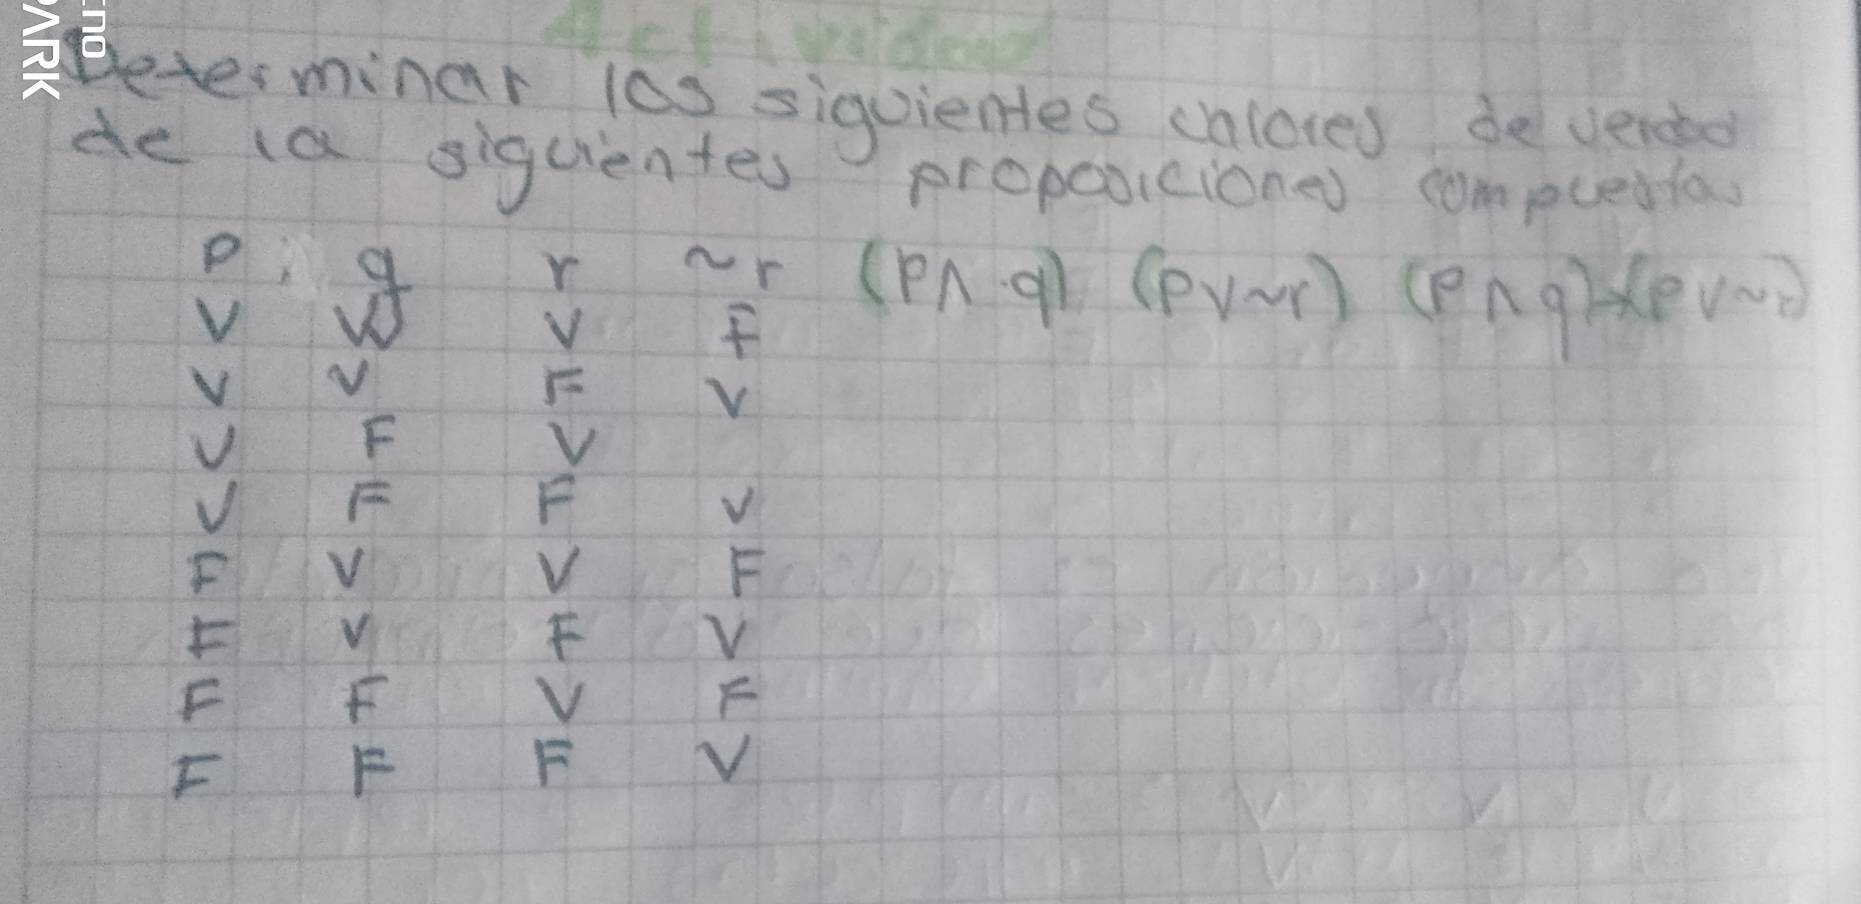 Actividad
Determinar los siguientes valores de verdad
de la siguientes proposiciones compuestas
p q r ~r (p∧q) (p∨~r) (p∧q)→(p∨~r)
V V V F
V V F V
V F V
V F F V
F V V F
F V F V
F F V F
F F F V